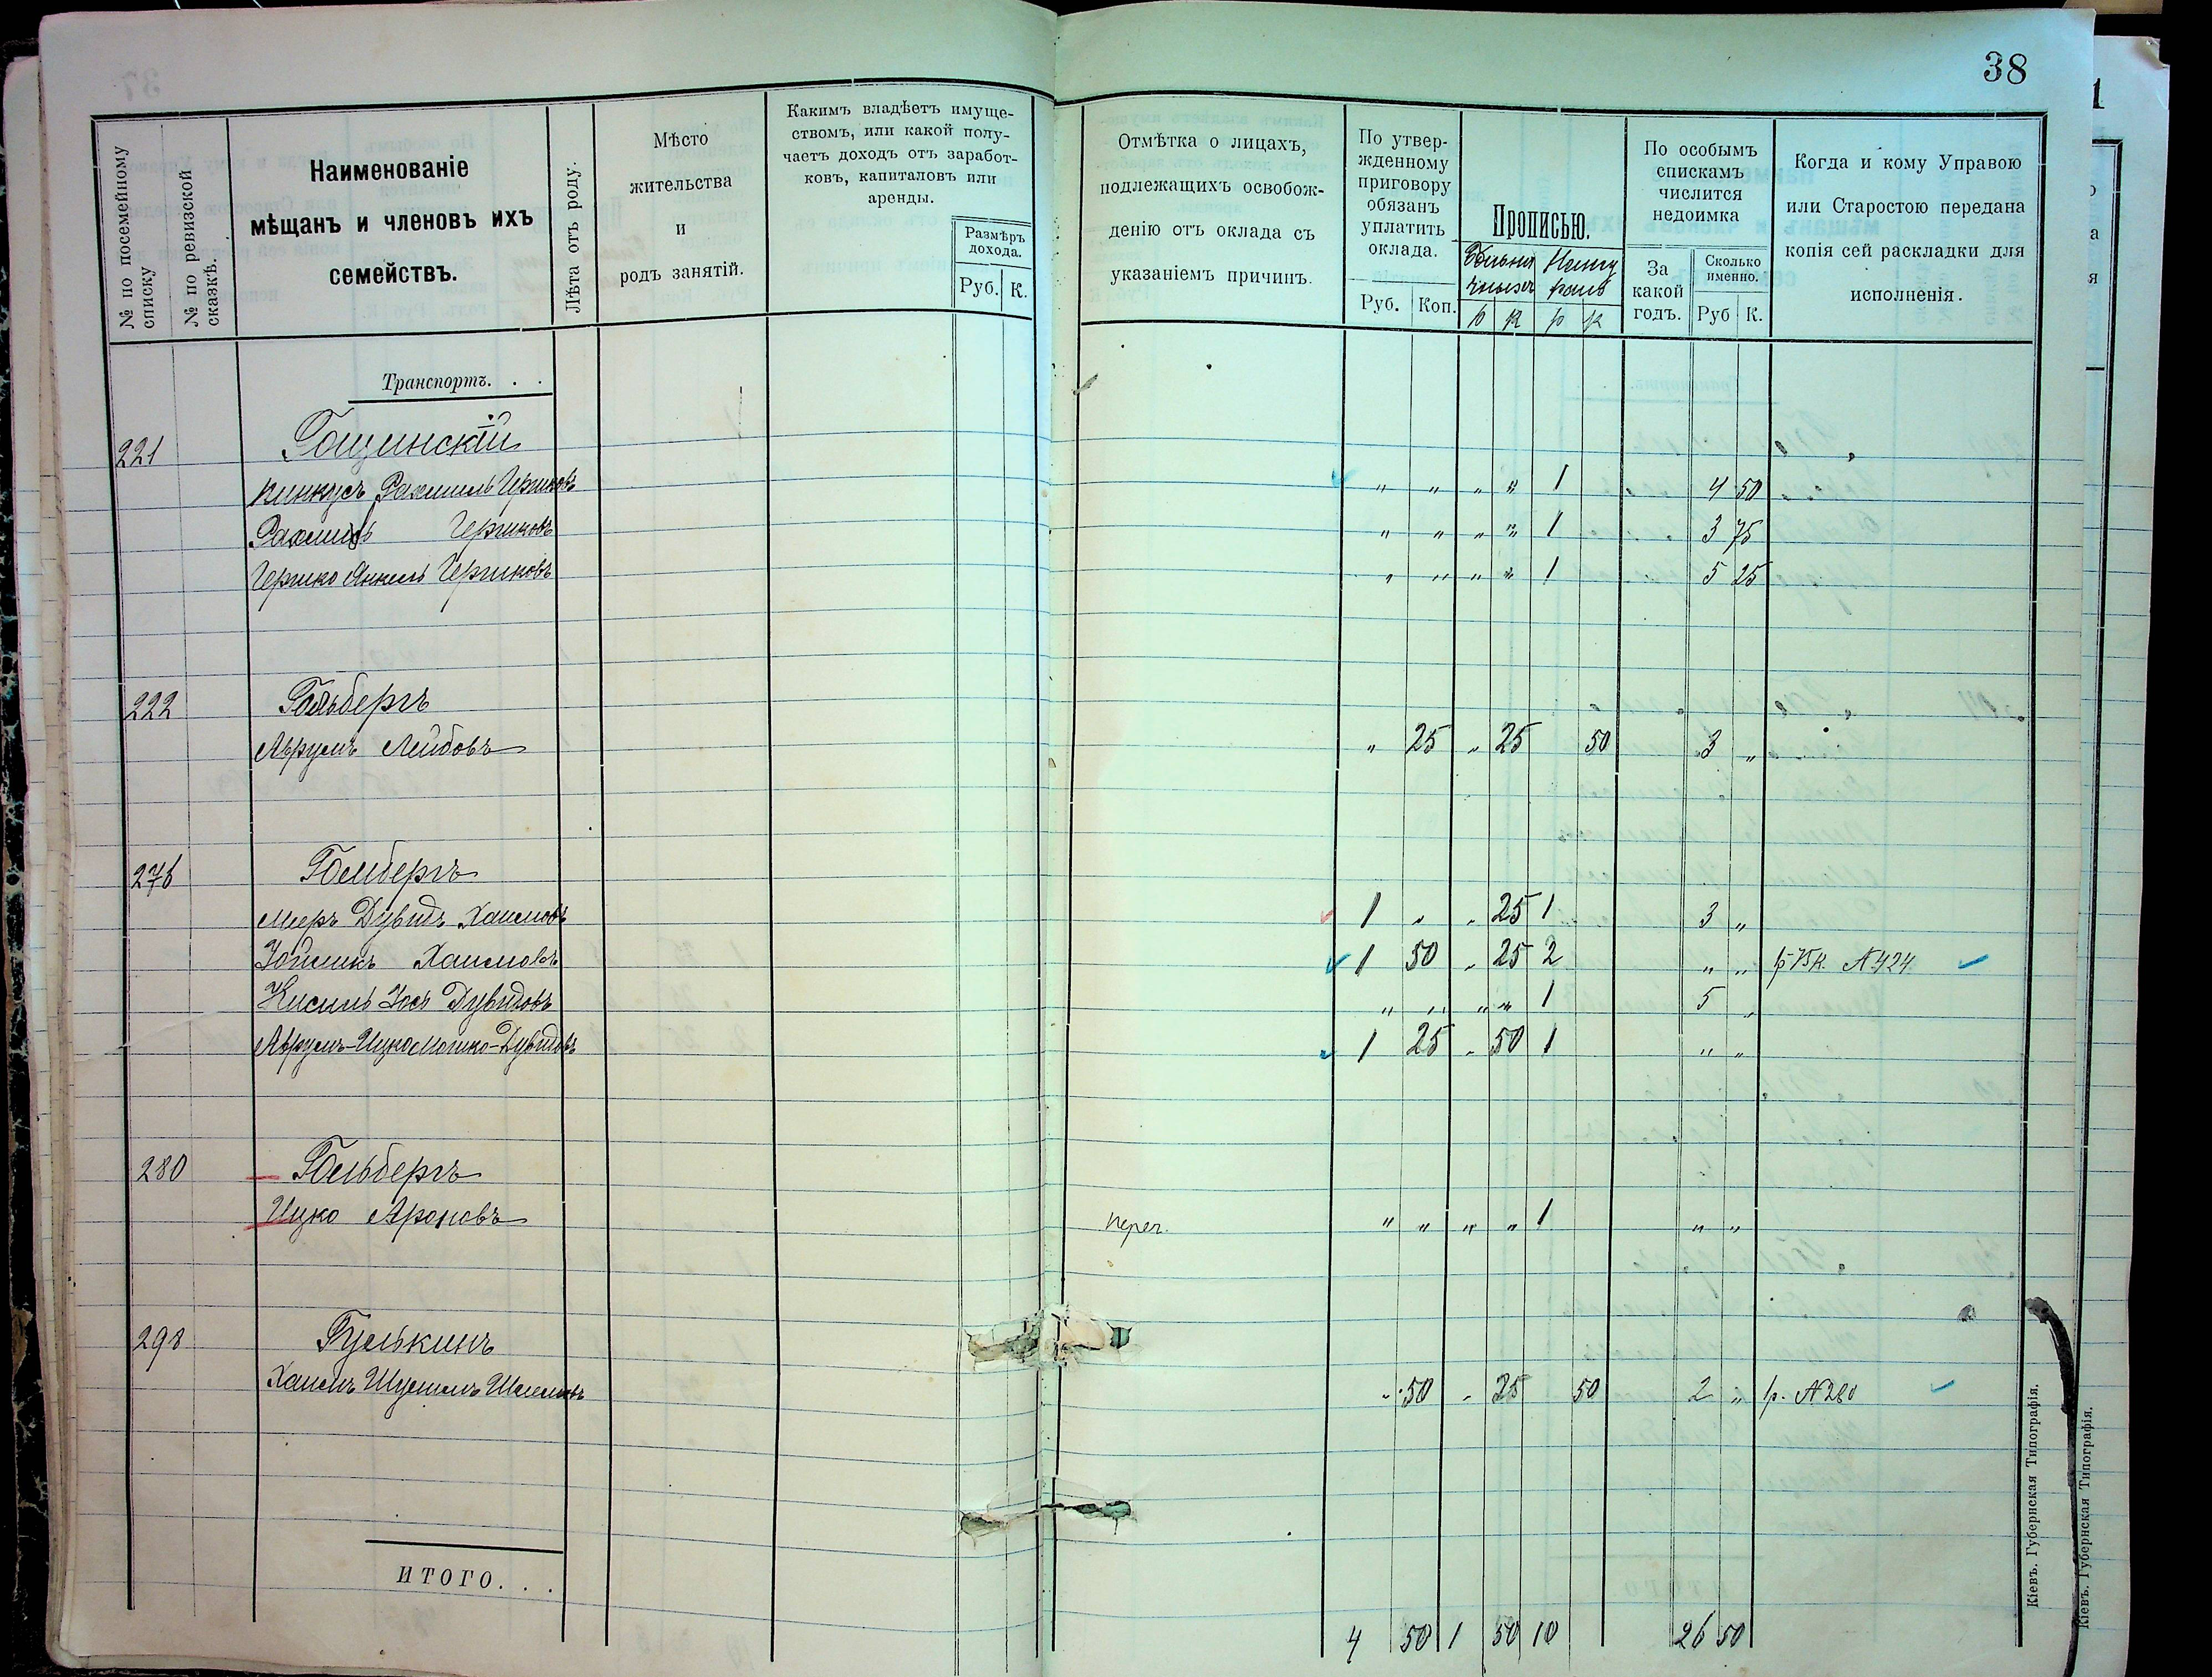 38
№ по посемейному списку
№ по ревизской сказкѣ.
Наименованіе
мѣщанъ и членовъ ихъ
семействъ.
Лѣта отъ роду.
Мѣсто
жительства
и
родъ занятій.
Какимъ владѣетъ имуще-
ствомъ, или какой полу-
чаетъ доходъ отъ заработ-
ковъ, капиталовъ или
аренды.
Размѣръ
дохода.
Руб. К.
Отмѣтка о лицахъ,
подлежащихъ освобож-
денію отъ оклада съ
указаніемъ причинъ.
По утвер-
жденному
приговору
обязанъ
уплатить
оклада.
Руб. Коп.
Прописью.
р к р к
По особымъ
спискамъ
числится
недоимка
За
какой
годъ.
Сколько
именно.
Руб К.
Когда и кому Управою
или Старостою передана
копія сей раскладки для
исполненія.
Транспортъ. . .
221 Гощинскій
Пинкусъ Рахмиль Гершковъ " " " " 1 4 50
Рахмиль Гершковъ " " " " 1 3 75
Гершко Янкель Гершковъ " " " " 1 5 25
222 Гольбергъ
Аврумъ Лейбовъ " 25 " 25 50 3 "
276 Гольбергъ
Мееръ Дувидъ Хаимовъ 1 " " 25 1 3 "
Хаимовъ 1 50 " 25 2 " " №424
Кисиль Іось Дувидовъ " " " " 1 5 "
Аврумъ-Ицко Мошко-Дувидовъ 1 25 " 50 1 " "
280 Гольбергъ
Ицко Ароновъ переч. " " " " 1 " "
298 Гулькинъ
Хаимъ Шулимъ " 50 " 25 50 2 " 1р. №280
ИТОГО. . .
4 50 1 50 10 26 50
Кіевъ. Губернская Типографія.
Кіевъ. Губернская Типографія.